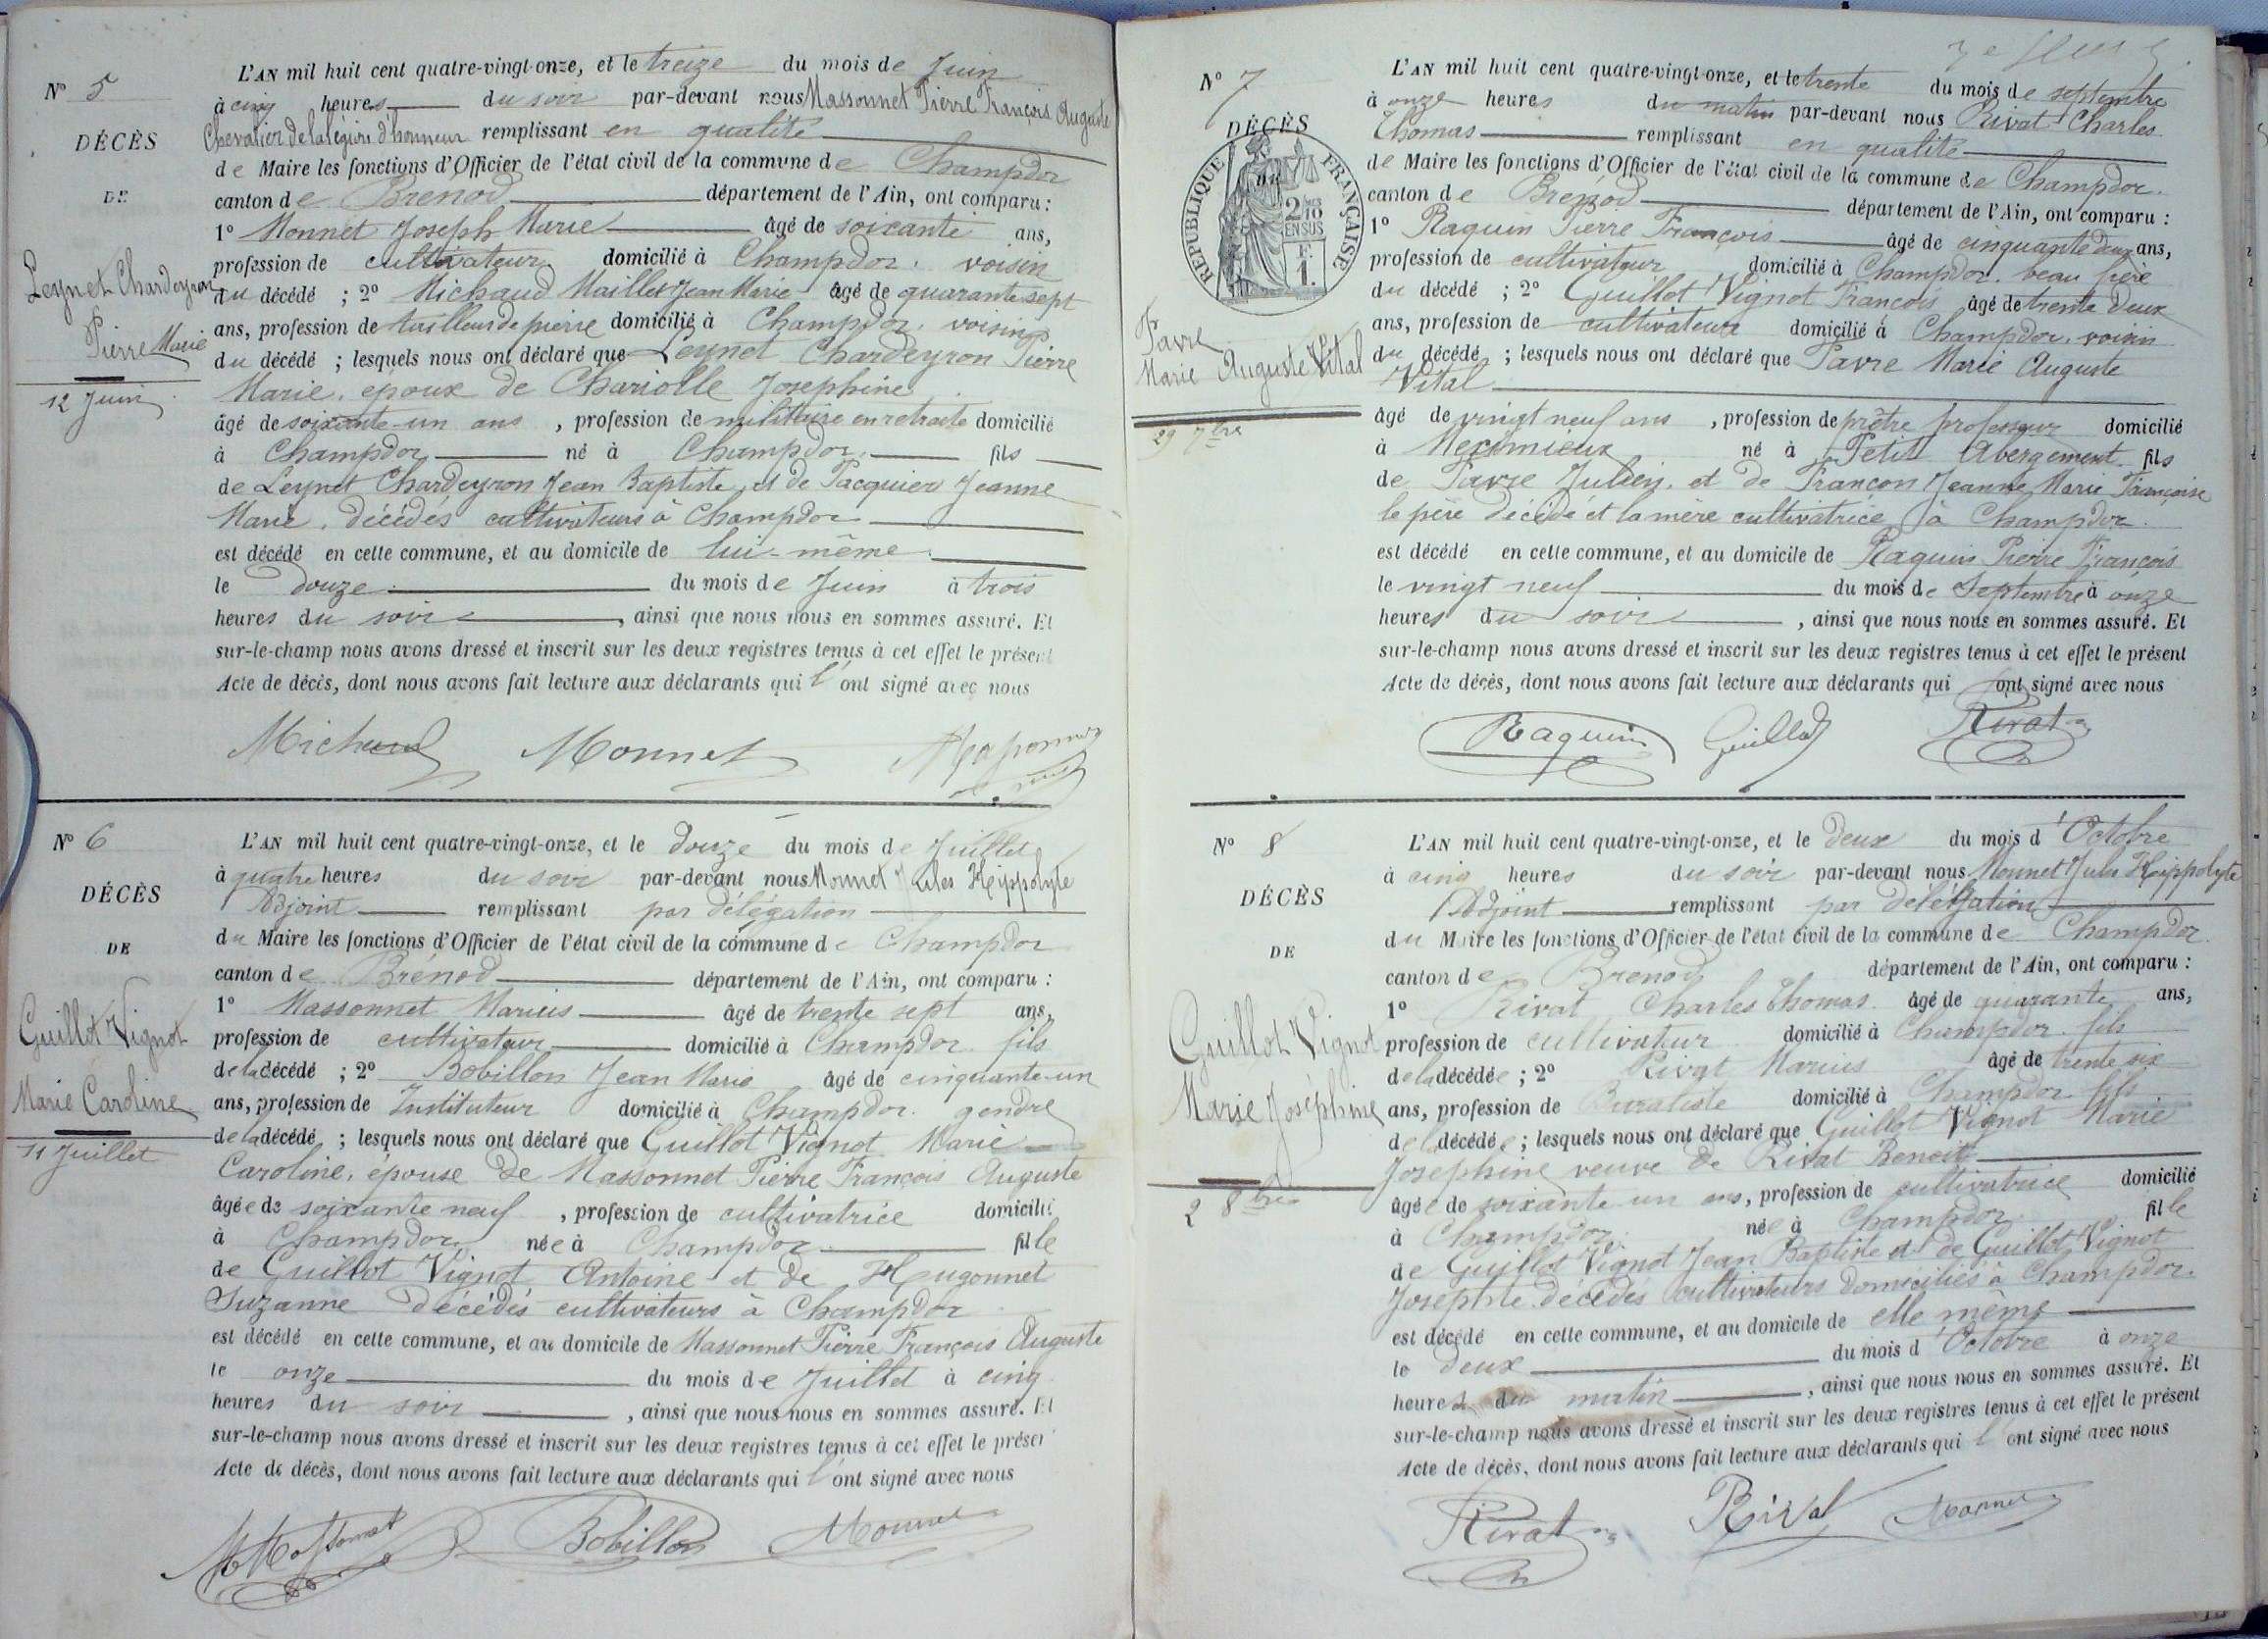 N° 5
DÉCÈS
DE
Leynet Chardeyron
Pierre Marie
12 Juin
L'AN mil huit cent quatre-vingt-onze, et le treize du mois de Juin
à cinq heures du soir par-devant nous Massonnet Pierre François Auguste
Chevalier de la légion d'honneur remplissant en qualité
de Maire les fonctions d'Officier de l'état civil de la commune de Champdor
canton de Brenod département de l'Ain, ont comparu :
1° Monnet Joseph Marie âgé de soixante ans,
profession de cultivateur domicilié à Champdor. voisin
du décédé ; 2° Michaud Maillet Jean Marie âgé de quarante sept
ans, profession de tailleur de pierre domicilié à Champdor. voisin
du décédé ; lesquels nous ont déclaré que Leynet Chardeyron Pierre
Marie, époux de Chariolle Josephine
âgé de soixante-un ans , profession de militaire en retraite domicilié
à Champdor né à Champdor fils
de Leynet Chardeyron Jean Baptiste et de Pacquier Jeanne
Marie, décédés cultivateurs à Champdor
est décédé en cette commune, et au domicile de lui-même
le douze du mois de Juin à trois
heures du soir , ainsi que nous nous en sommes assuré. Et
sur-le-champ nous avons dressé et inscrit sur les deux registres tenus à cet effet le présent
Acte de décès, dont nous avons fait lecture aux déclarants qui l'ont signé avec nous
Michaud Monnet Massonnet
N° 6
DÉCÈS
DE
Guillot Vignot
Marie Caroline
11 Juillet
L'AN mil huit cent quatre-vingt-onze, et le douze du mois de Juillet
à quatre heures du soir par-devant nous Monnet Jules Hippolyte
Adjoint remplissant par délégation
du Maire les fonctions d'Officier de l'état civil de la commune de Champdor
canton de Brénod département de l'Ain, ont comparu :
1° Massonnet Marius âgé de trente sept ans,
profession de cultivateur domicilié à Champdor. fils
de la décédé ; 2° Bobillon Jean Marie âgé de cinquante-un
ans, profession de Instituteur domicilié à Champdor. gendre
de la décédé ; lesquels nous ont déclaré que Guillot Vignot Marie
Caroline, épouse de Massonnet Pierre François Auguste
âgée de soixante neuf , profession de cultivatrice domicilié
à Champdor née à Champdor fille
de Guillot Vignot Antoine et de Hugonnet
Suzanne décédés cultivateurs à Champdor
est décédé en cette commune, et au domicile de Massonnet Pierre François Auguste
le onze du mois de Juillet à cinq
heures du soir , ainsi que nous nous en sommes assuré. Et
sur-le-champ nous avons dressé et inscrit sur les deux registres tenus à cet effet le présent
Acte de décès, dont nous avons fait lecture aux déclarants qui l'ont signé avec nous
M Massonnet Bobillon Monnet
N° 7
DÉCÈS
DE
RÉPUBLIQUE FRANÇAISE
2/10 EN SUS
F. 1.
Favre
Marie Auguste Vital
29 7bre
L'AN mil huit cent quatre-vingt-onze, et le trente du mois de septembre
à onze heures du matin par-devant nous Rivat Charles
Thomas remplissant en qualité
de Maire les fonctions d'Officier de l'état civil de la commune de Champdor.
canton de Brénod département de l'Ain, ont comparu :
1° Raquin Pierre François âgé de cinquante deux ans,
profession de cultivateur domicilié à Champdor. beau père
du décédé ; 2° Guillot Vignot François âgé de trente deux
ans, profession de cultivateur domicilié à Champdor. voisin
du décédé ; lesquels nous ont déclaré que Favre Marie Auguste
Vital
âgé de vingt neuf ans , profession de prêtre professeur domicilié
à Meximieux né à Petit Abergement fils
de Favre Julien. et de Françon Jeanne Marie Françoise
le père décédé et la mère cultivatrice à Champdor.
est décédé en cette commune, et au domicile de Raquin Pierre François
le vingt neuf du mois de Septembre à onze
heures du soir , ainsi que nous nous en sommes assuré. Et
sur-le-champ nous avons dressé et inscrit sur les deux registres tenus à cet effet le présent
Acte de décès, dont nous avons fait lecture aux déclarants qui ont signé avec nous
Raquin Guillot Rivat
N° 8
DÉCÈS
DE
Guillot Vignot
Marie Joséphine
2 8bre
L'AN mil huit cent quatre-vingt-onze, et le deux du mois d'Octobre
à cinq heures du soir par-devant nous Monnet Jules Hippolyte
Adjoint remplissant par délégation
du Maire les fonctions d'Officier de l'état civil de la commune de Champdor.
canton de Brenod département de l'Ain, ont comparu :
1° Rivat Charles Thomas âgé de quarante ans,
profession de cultivateur domicilié à Champdor. fils
de la décédée ; 2° Rivat Marius âgé de trente six
ans, profession de Buraliste domicilié à Champdor fils
de la décédée ; lesquels nous ont déclaré que Guillot Vignot Marie
Josephine veuve de Rivat Benoit
âgée de soixante un ans, profession de cultivatrice domicilié
à Champdor née à Champdor. fille
de Guillot Vignot Jean Baptiste et de Guillot Vignot
Josephte décédés cultivateurs domiciliés à Champdor.
est décédé en cette commune, et au domicile de elle même
le deux du mois d'Octobre à onze
heures du matin , ainsi que nous nous en sommes assuré. Et
sur-le-champ nous avons dressé et inscrit sur les deux registres tenus à cet effet le présent
Acte de décès, dont nous avons fait lecture aux déclarants qui l'ont signé avec nous
Rivat Rivat Monnet